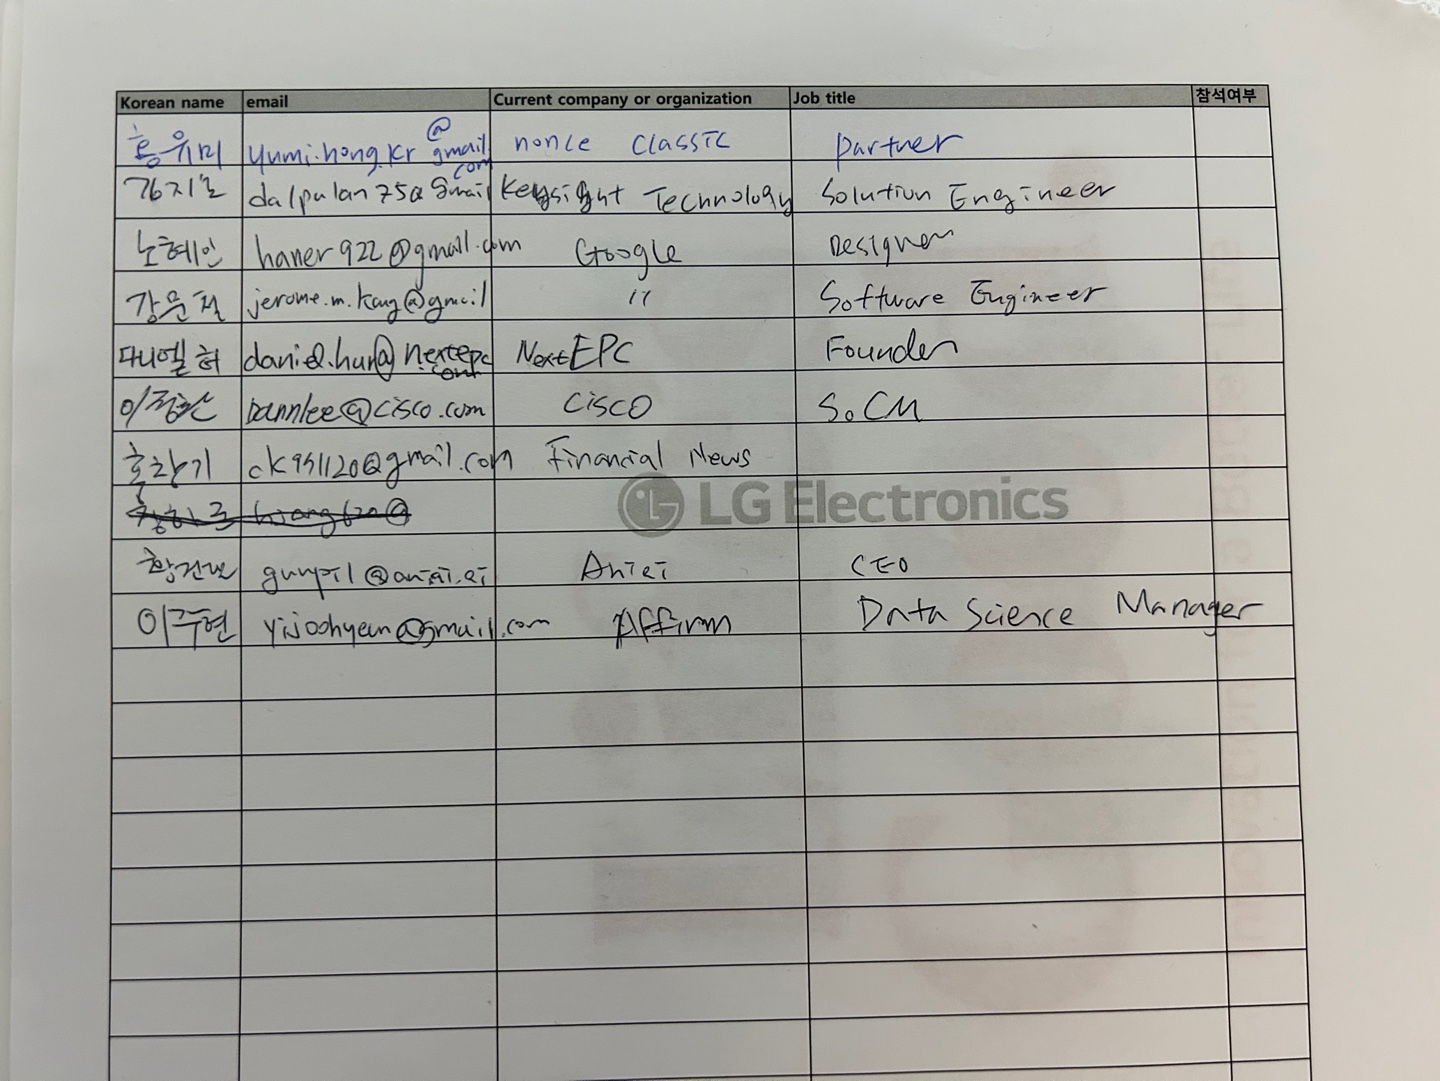 Korean name email Current company or organization Job title 참석여부
홍유미 yumi.hong.kr@gmail.com nonce classic partner
김지일 dalpulan75@gmail Keysight Technology Solution Engineer
노혜인 haner922@gmail.com Google Designer
강문철 jerome.m.kang@gmail 〃 Software Engineer
다니엘 허 daniel.hur@nextepc.com NextEPC Founder
이정환 @cisco.com CISCO
홍창기 ck951120@gmail.com Financial News
LG Electronics
황건필 gunpil@aniai.ai Aniai CEO
이주현 yijoohyeun@gmail.com Affirm Data Science Manager